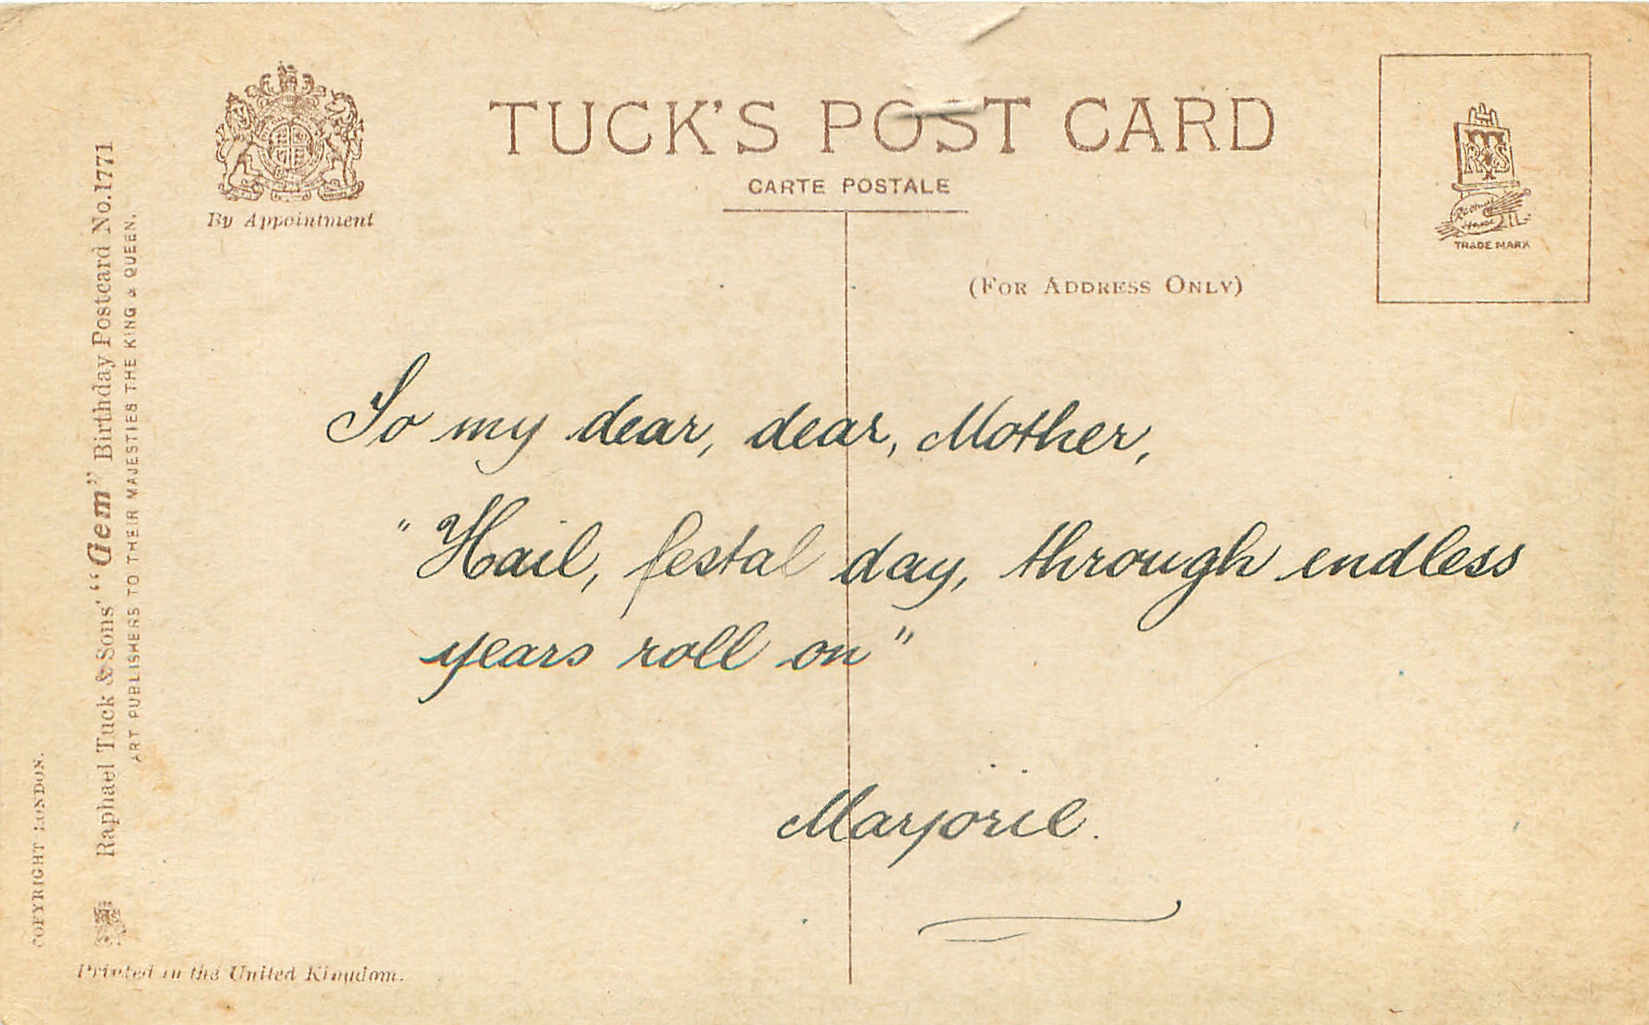 TUCK'S POST CARD
CARTE POSTALE
By Appointment
(FOR ADDRESS ONLY)
RTS
TRADE MARK
To my dear, dear, Mother,
"Hail, festal day, through endless
years roll on"
Marjorie.
Raphael Tuck & Sons' "Gem" Birthday Postcard No. 1771
ART PUBLISHERS TO THEIR MAJESTIES THE KING & QUEEN.
COPYRIGHT LONDON.
Printed in the United Kingdom.